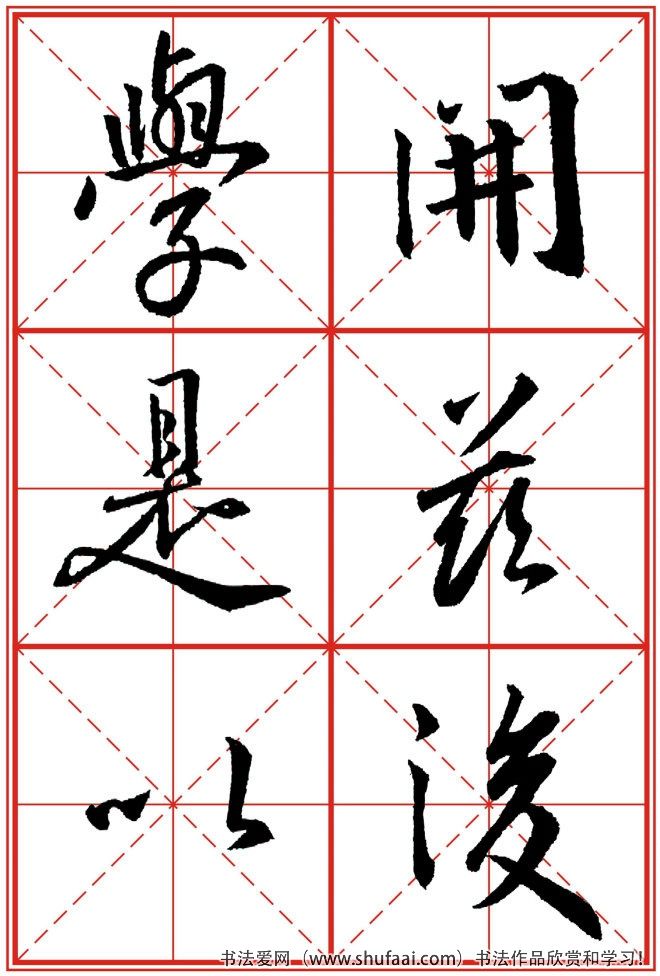 開茲後
學是以
书法爱网（www.shufaai.com）书法作品欣赏和学习!